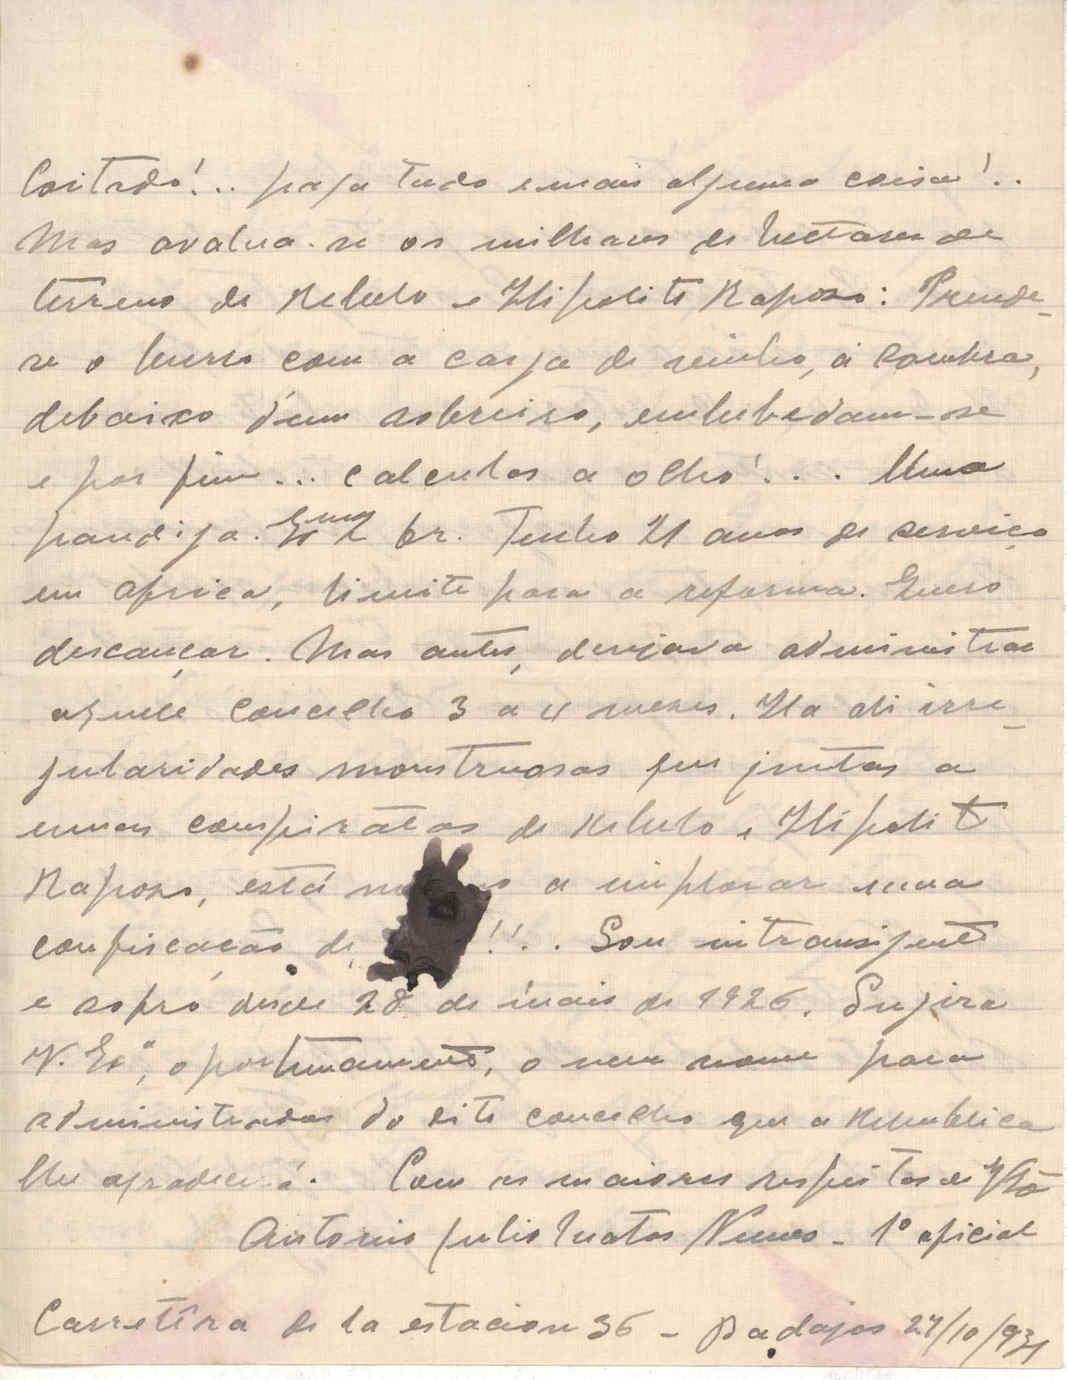 Coitado!.. paga tudo e mais alguma coisa!..
Mas avalua-se os milhares de hectares de
terreno de Rebelo e Hipolito Raposo: Prende-
se o burro com a carga de vinho, á sombra,
debaixo d'um sobreiro, embebedam-se
e por fim... calculos a olho!... Uma
pandiga. Exmo Sr. Tenho 21 anos de serviço
em africa, limite para a reforma. Quero
descançar. Mas antes, desejava administrar
aquele concelho 3 a 4 mezes. Ha ali irre-
gularidades monstruosas que juntas a
umas conspiratas de Rebelo e Hipolito
Raposo, está a implorar uma
confiscação de !!.. Sou intransigente
e sofro desde 28 de maio de 1926. Sugira
V. Exª, oportunamente, o meu nome para
administrador do dito concelho que a Republica
lhe agradecerá. Com os maiores respeitos de
Antonio Julio Matos Nunes - 1º oficial
Carretêra de la estacion 36 - Badajos 27/10/931